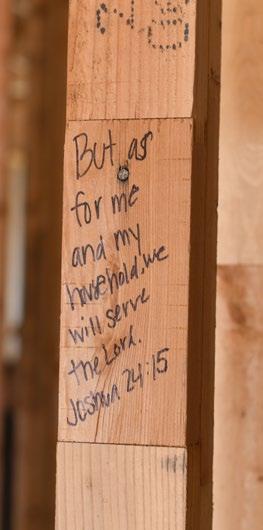 NG
But as
for me
and my
household, we
will serve
the Lord.
Joshua 24:15